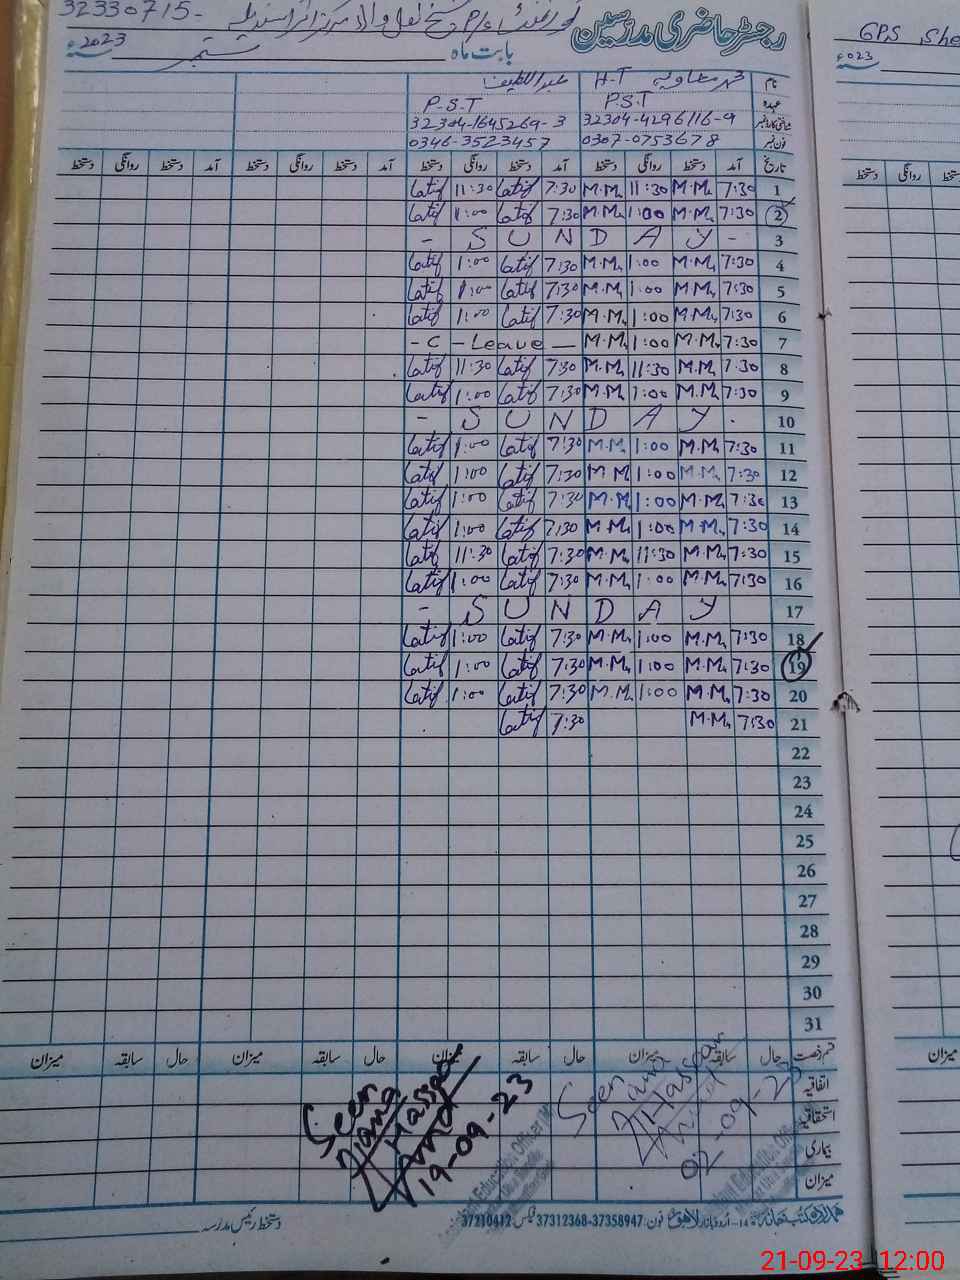 رجسٹر حاضری مدرسین
32330715-
بابت ماہ ستمبر 2023ء
GPS, She
2023ء
نام محمد معاویہ H-T عبداللطیف
عہدہ P.S.T P-S-T
شناختی کارڈ نمبر 32304-4296116-9 32304-1645269-3
فون نمبر 0307-0753678 0346-3523457
تاریخ آمد دستخط روانگی دستخط آمد دستخط روانگی دستخط آمد دستخط روانگی دستخط آمد دستخط روانگی دستخط
1 7:30 M.M. 11:30 M.M. 7:30 Latif 11:30 Latif
2 7:30 M.M. 1:00 M.M. 7:30 Latif 1:00 Latif
3 - S U N D A Y -
4 7:30 M.M. 1:00 M.M. 7:30 Latif 1:00 Latif
5 7:30 M.M. 1:00 M.M. 7:30 Latif 1:00 Latif
6 7:30 M.M. 1:00 M.M. 7:30 Latif 1:00 Latif
7 7:30 M.M. 1:00 M.M. - C - Leave -
8 7:30 M.M. 11:30 M.M. 7:30 Latif 11:30 Latif
9 7:30 M.M. 1:00 M.M. 7:30 Latif 1:00 Latif
10 - S U N D A Y .
11 7:30 M.M. 1:00 M.M. 7:30 Latif 1:00 Latif
12 7:30 M.M. 1:00 M.M. 7:30 Latif 1:00 Latif
13 7:30 M.M. 1:00 M.M. 7:30 Latif 1:00 Latif
14 7:30 M.M. 1:00 M.M. 7:30 Latif 1:00 Latif
15 7:30 M.M. 11:30 M.M. 7:30 Latif 11:30 Latif
16 7:30 M.M. 1:00 M.M. 7:30 Latif 1:00 Latif
17 - S U N D A Y
18 7:30 M.M. 1:00 M.M. 7:30 Latif 1:00 Latif
19 7:30 M.M. 1:00 M.M. 7:30 Latif 1:00 Latif
20 7:30 M.M. 1:00 M.M. 7:30 Latif 1:00 Latif
21 7:30 M.M. 7:30 Latif
22
23
24
25
26
27
28
29
30
31
قسم رخصت حال سابقہ میزان حال سابقہ میزان حال سابقہ میزان حال سابقہ میزان
اتفاقیہ
استحقاقیہ
بیماری
میزان
Seen
Rana
Hassan
Amd
02-09-23
Seen
Rana
Hassan
Amd
19-09-23
دستخط رئیس مدرسہ
اردو بازار لاہور فون: 37358947-37312368 فیکس: 37210412
21-09-23 12:00